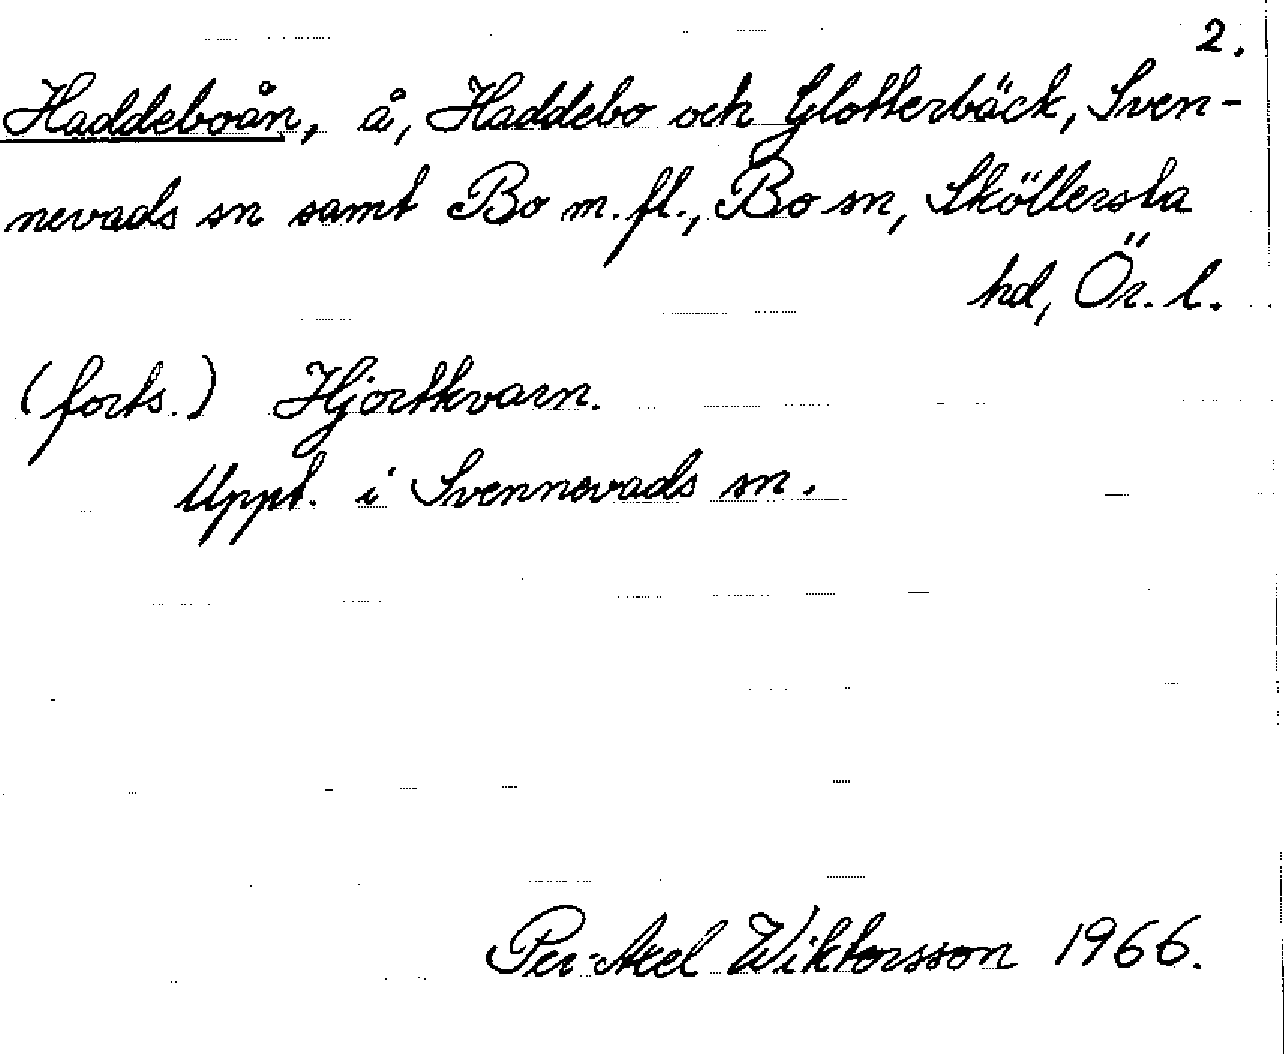 2.
Haddeboån, å, Haddebo och Glotterbäck, Sven-
nevads sn samt Bo m. fl., Bo sn, Sköllersta
hd, Ör. l.
(forts.) Hjortkvarn.
Uppt. i Svennevads sn.
Per-Axel Wiktorsson 1966.